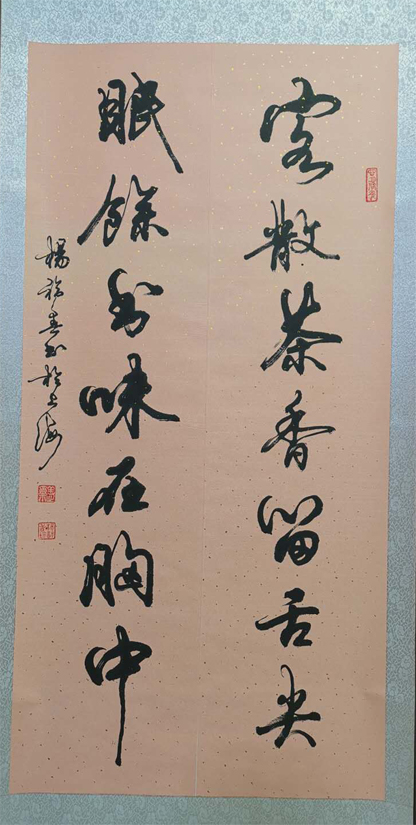 客散茶香留舌尖
眠餘书味在胸中
楊春书於上海